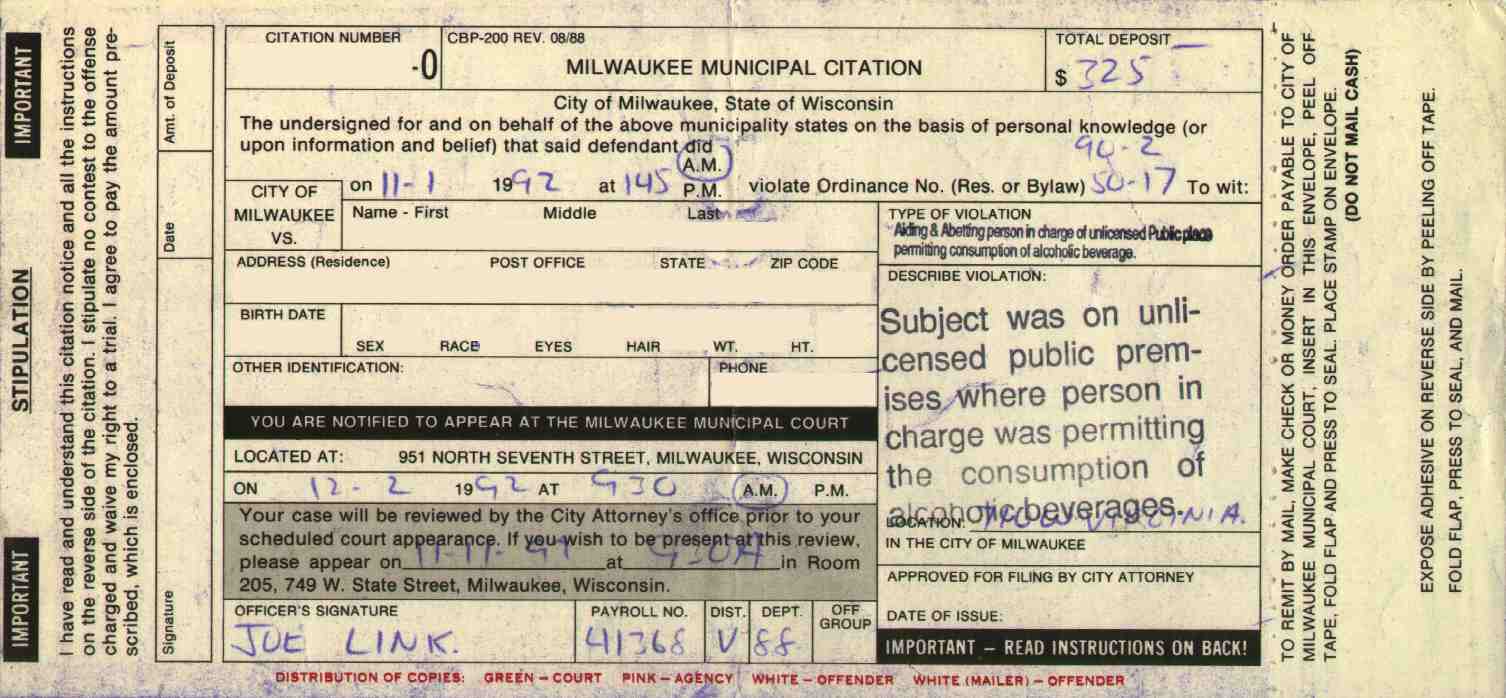 IMPORTANT
STIPULATION
IMPORTANT
I have read and understand this citation notice and all the instructions
on the reverse side of the citation. I stipulate no contest to the offense
charged and waive my right to a trial. I agree to pay the amount pre-
scribed, which is enclosed.
Signature
Date
Amt. of Deposit
CITATION NUMBER
-0
CBP-200 REV. 08/88
MILWAUKEE MUNICIPAL CITATION
TOTAL DEPOSIT
$ 325
City of Milwaukee, State of Wisconsin
The undersigned for and on behalf of the above municipality states on the basis of personal knowledge (or
upon information and belief) that said defendant did
90-2
A.M.
CITY OF
MILWAUKEE
VS.
on 11-1 1992 at 145 P.M. violate Ordinance No. (Res. or Bylaw) 50-17 To wit:
Name - First Middle Last
TYPE OF VIOLATION
Aiding & Abetting person in charge of unlicensed Public place
permitting consumption of alcoholic beverage.
ADDRESS (Residence) POST OFFICE STATE ZIP CODE
DESCRIBE VIOLATION:
Subject was on unli-
censed public prem-
ises where person in
charge was permitting
the consumption of
alcoholic beverages.
BIRTH DATE
SEX RACE EYES HAIR WT. HT.
OTHER IDENTIFICATION:
PHONE
YOU ARE NOTIFIED TO APPEAR AT THE MILWAUKEE MUNICIPAL COURT
LOCATED AT: 951 NORTH SEVENTH STREET, MILWAUKEE, WISCONSIN
ON 12-2 1992 AT 930 A.M. P.M.
LOCATION: VIRGINIA.
IN THE CITY OF MILWAUKEE
Your case will be reviewed by the City Attorney's office prior to your
scheduled court appearance. If you wish to be present at this review,
please appear on at 930A in Room
205, 749 W. State Street, Milwaukee, Wisconsin.
APPROVED FOR FILING BY CITY ATTORNEY
DATE OF ISSUE:
OFFICER'S SIGNATURE
JOE LINK.
PAYROLL NO.
41368
DIST.
V
DEPT.
88
OFF
GROUP
IMPORTANT – READ INSTRUCTIONS ON BACK!
DISTRIBUTION OF COPIES: GREEN – COURT PINK – AGENCY WHITE – OFFENDER WHITE (MAILER) – OFFENDER
TO REMIT BY MAIL, MAKE CHECK OR MONEY ORDER PAYABLE TO CITY OF
MILWAUKEE MUNICIPAL COURT, INSERT IN THIS ENVELOPE, PEEL OFF
TAPE, FOLD FLAP AND PRESS TO SEAL. PLACE STAMP ON ENVELOPE.
(DO NOT MAIL CASH)
EXPOSE ADHESIVE ON REVERSE SIDE BY PEELING OFF TAPE.
FOLD FLAP, PRESS TO SEAL, AND MAIL.